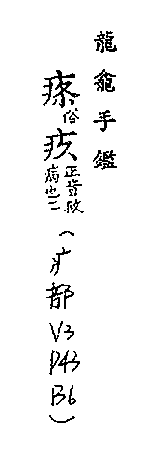 龍龕手鑑
俗疚正音救病也二(疒部V3P43B6)